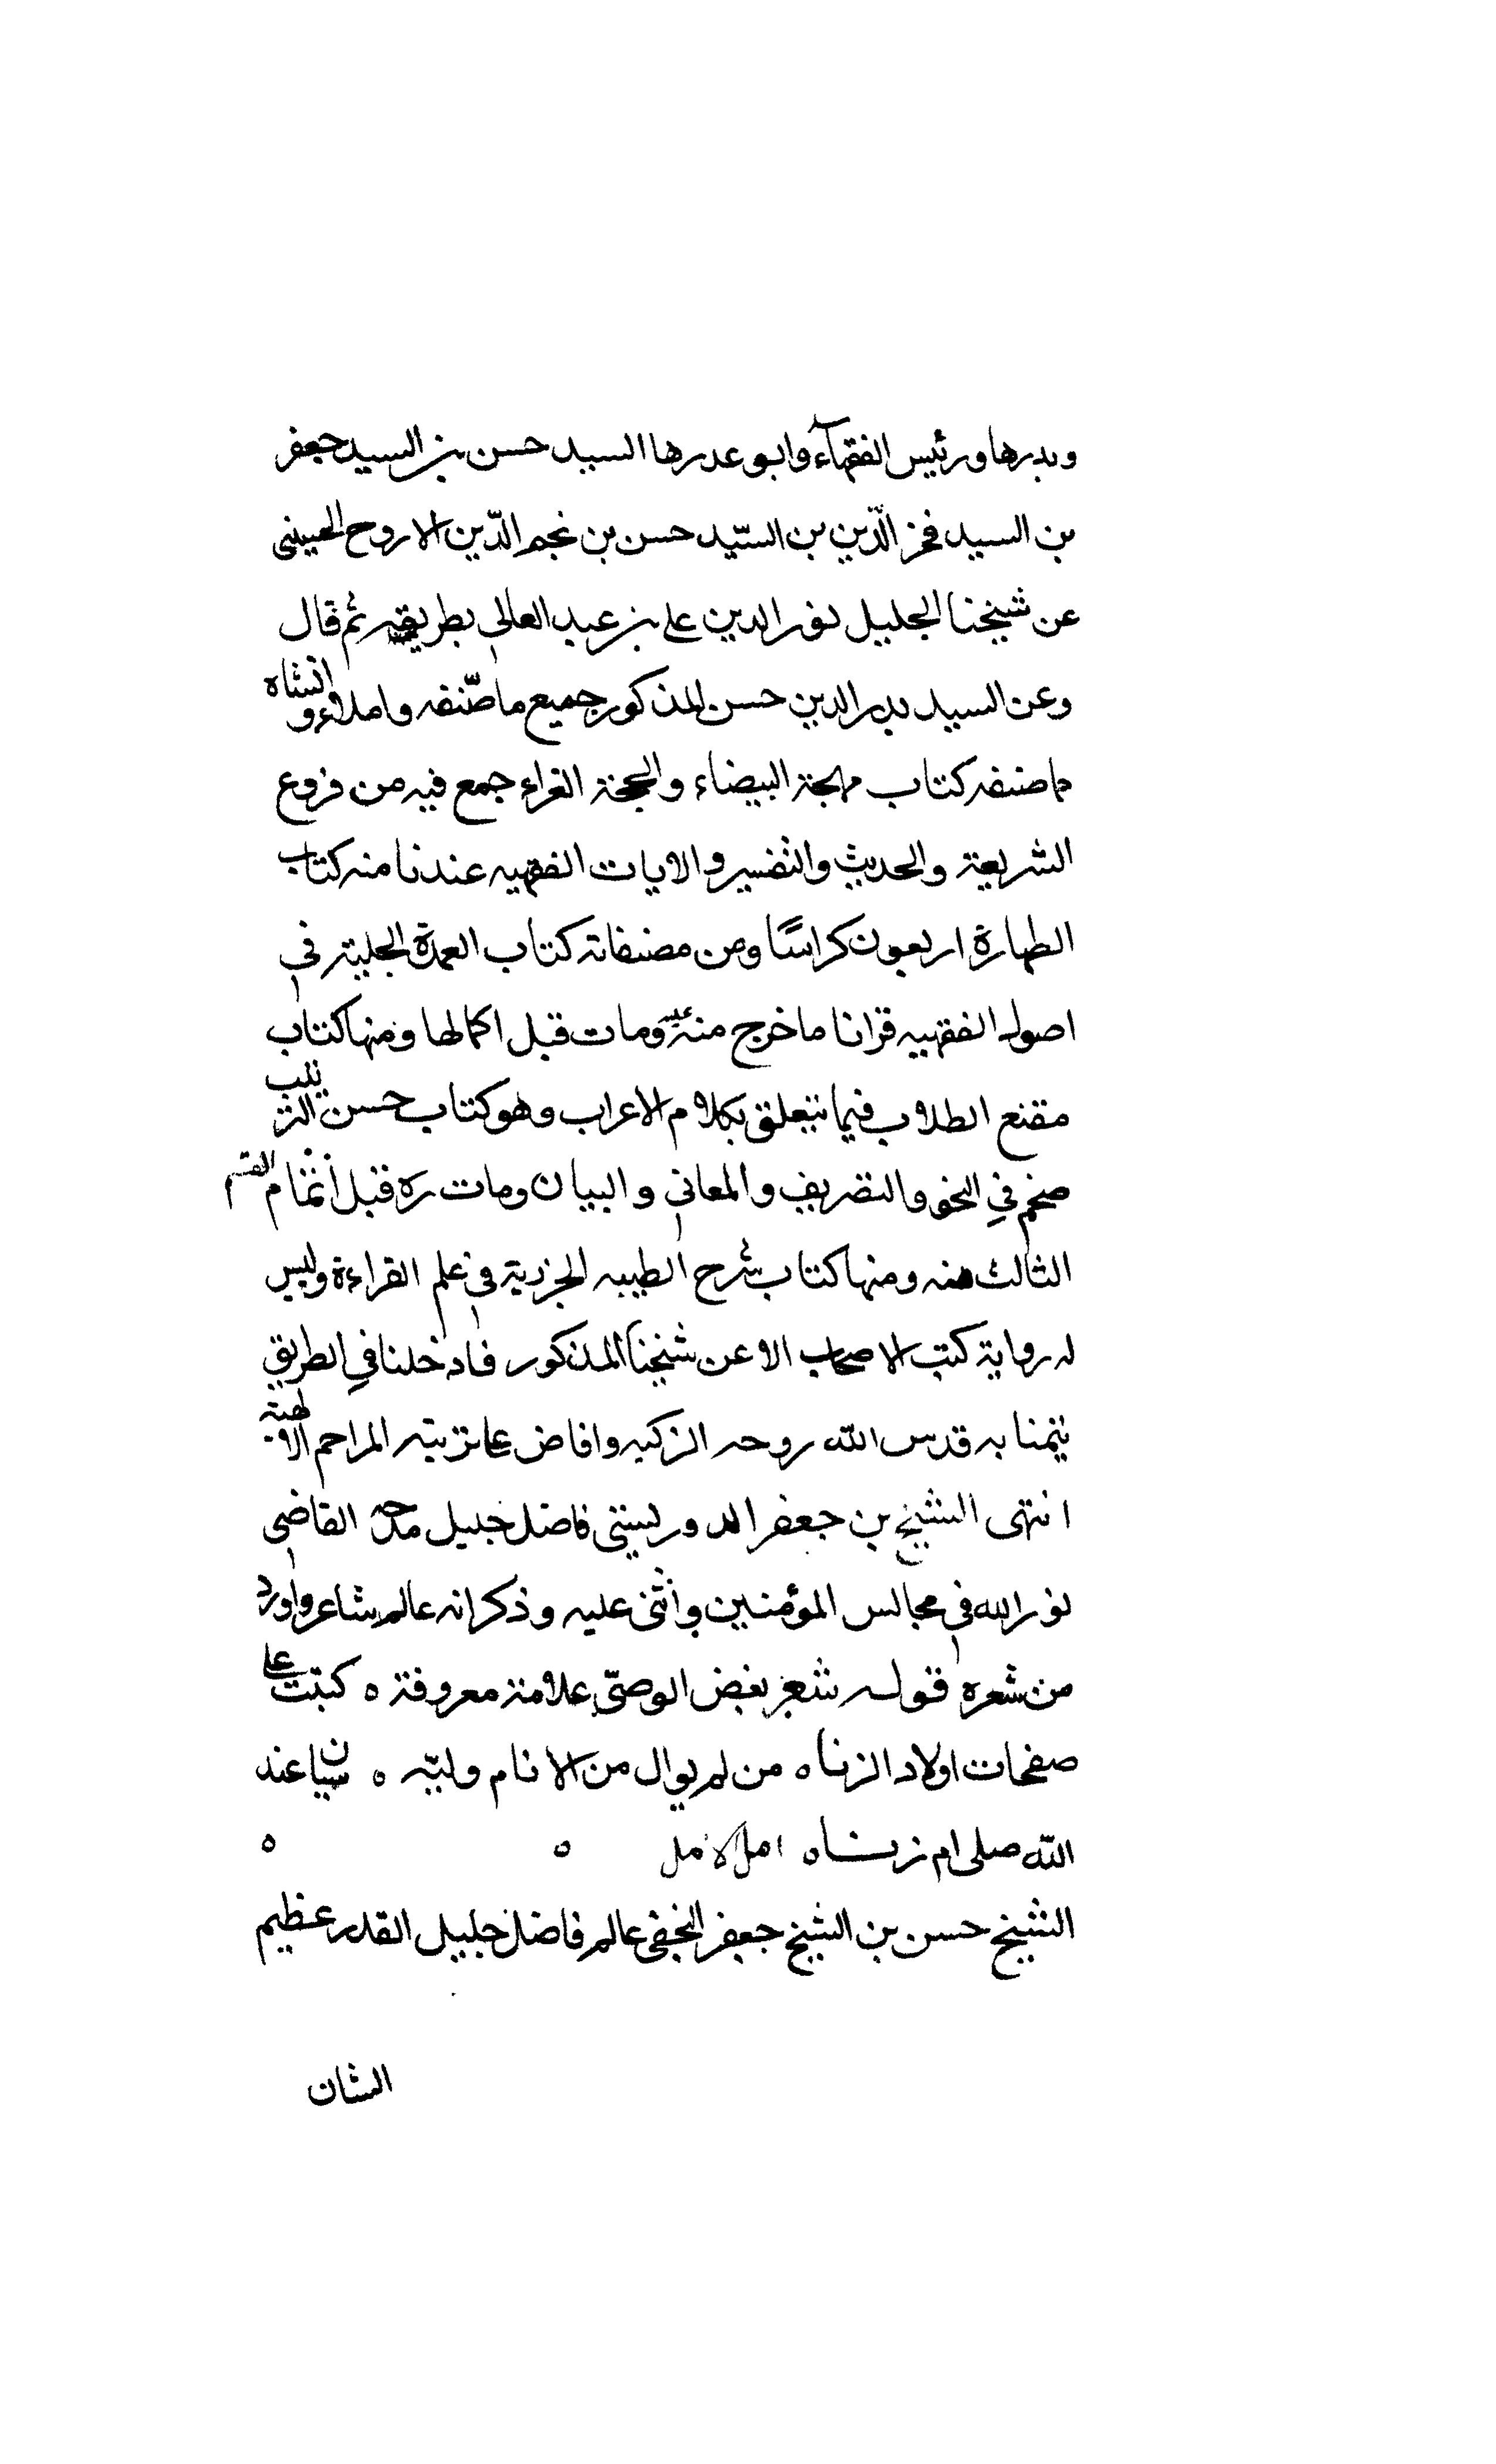 وبدرها ورئيس الفقهاء وابو عدرها السيد حسن بن السيد جعفر
بن السيد فخر الدّين بن السيّد حسن بن نجم الدّين الاروح الحسينى
عن شيخنا الجليل نور الدين على بن عبد العالى بطريقه ثم قال
وعن السيد بدر الدين حسن المذكور جميع ما صنّفه واملاء وانشاه
ما صنفه كتاب مهجة البيضاء والحجة الغراء جمع فيه من فروع
الشريعة والحديث والتفسير والايات الفقهيه عندنا منه كتاب
الطهارة اربعون كراسًا ومن مصنفاته كتاب العمدة الجلية فى
اصول الفقهيه قرانا ما خرج منه عليه ومات قبل اكمالها ومنها كتاب
مقنع الطلاب فيما يتعلق بكلام الاعراب وهو كتاب حسن الترتيب
ضخم فى النحو والتصريف والمعانى والبيان ومات ره قبل أتمام القسم
الثالث منه ومنها كتاب شرح الطيبه الجزرية فى علم القراءة وليس
له رواية كتب الاصحاب الا عن شيخنا المذكور فادخلنا فى الطريق
تيمنا به قدس الله روحه الزكيه وافاض على تربته المراحم الالهية
انتهى الشيخ بن جعفر الدوريستى فاضل جليل مدحه القاضى
نور الله فى مجالس المؤمنين واثنى عليه وذكر انه عالم شاعر واورد
من شعره قوله شعر بغض الوصىّ علامة معروفة ه كتبت على
صفحات اولاد الزناه من لم يوال من الانام وليّه ه سيان عند
الله صلى ام زناه امل الامل ه ه
الشيخ حسن بن الشيخ جعفر النجفى عالم فاضل جليل القدر عظيم
الشان